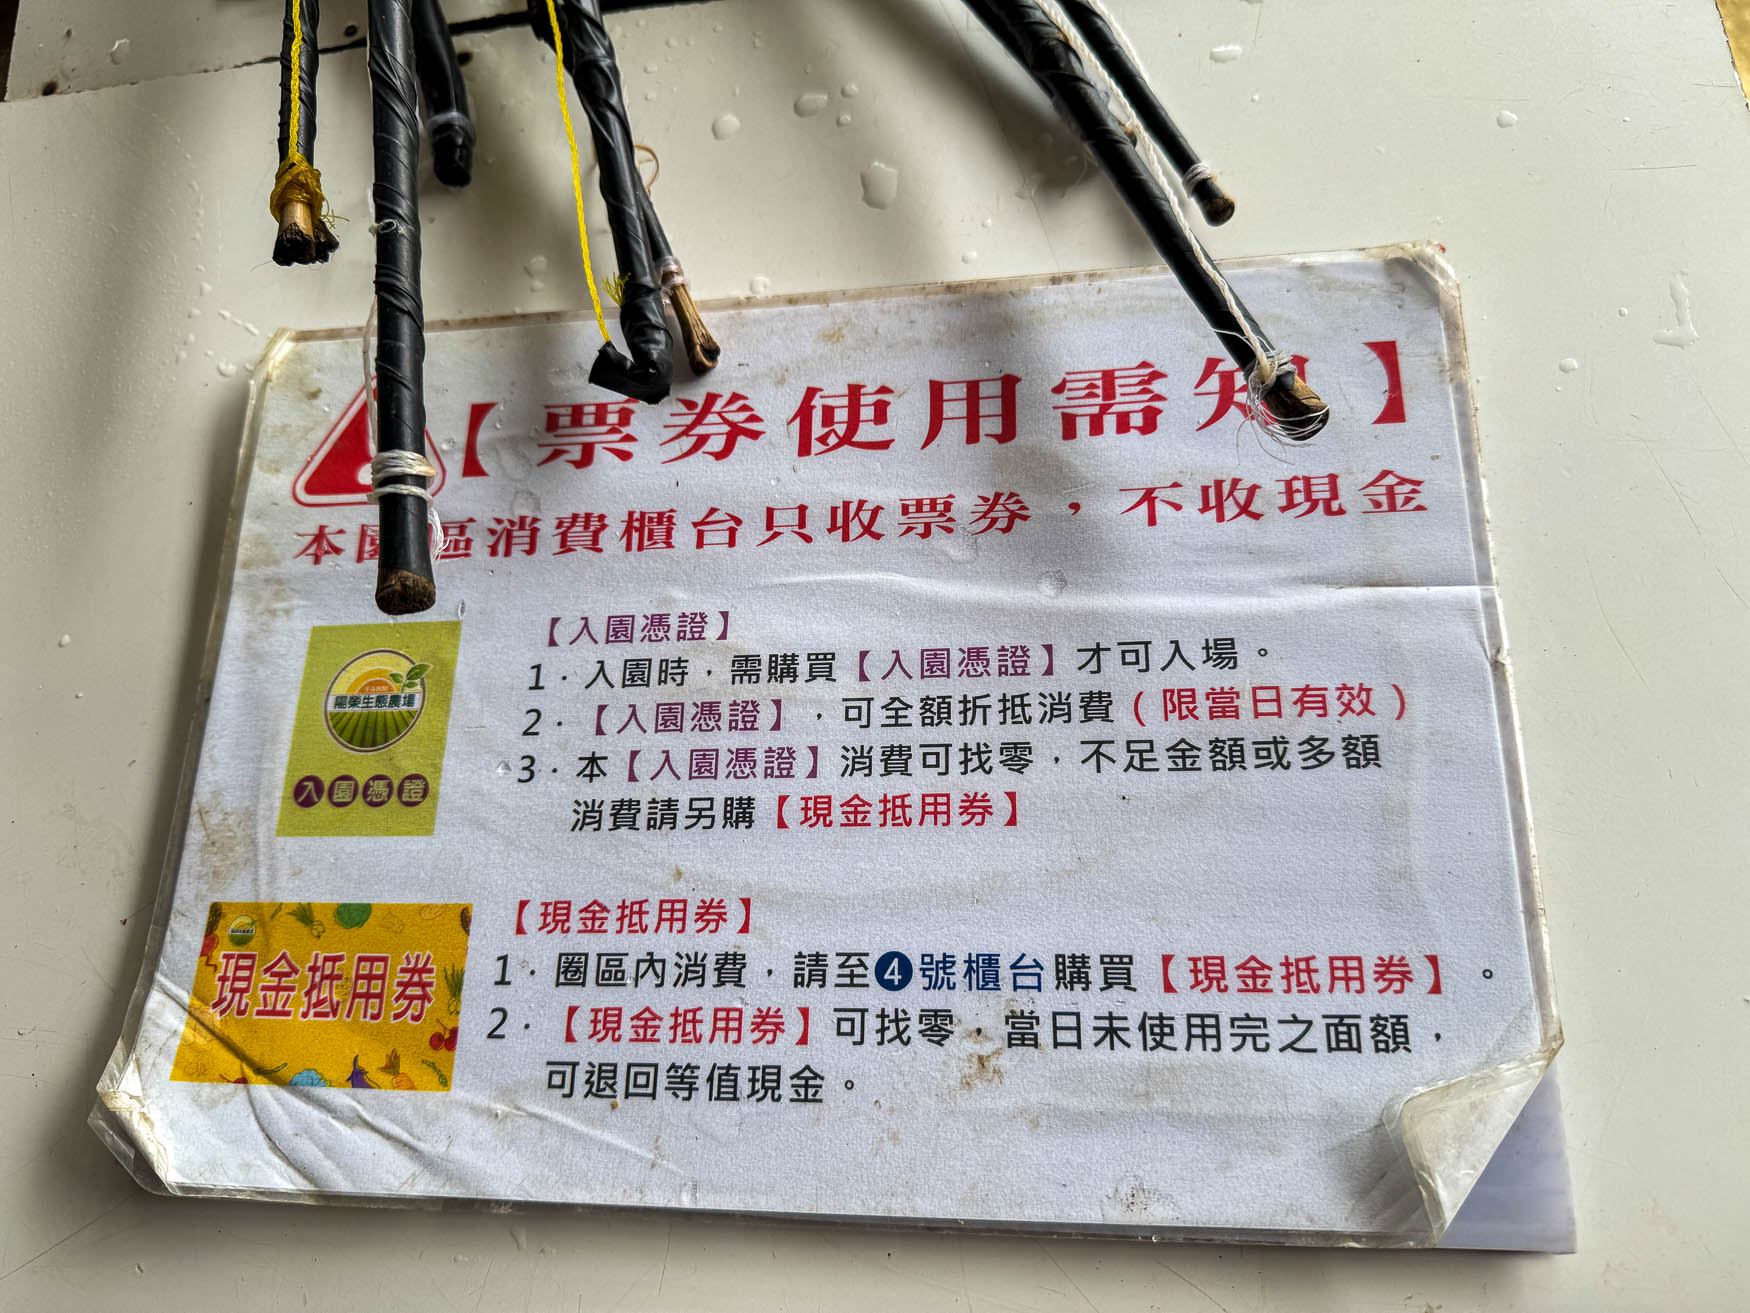 【票券使用需知】
本園區消費櫃台只收票券，不收現金
【入園憑證】
1. 入園時，需購買【入園憑證】才可入場。
2. 【入園憑證】，可全額折抵消費（限當日有效）
3. 本【入園憑證】消費可找零，不足金額或多額
消費請另購【現金抵用券】
陽榮生態農場
入園憑證
【現金抵用券】
1. 圈區內消費，請至4號櫃台購買【現金抵用券】。
2. 【現金抵用券】可找零，當日未使用完之面額，
可退回等值現金。
現金抵用券